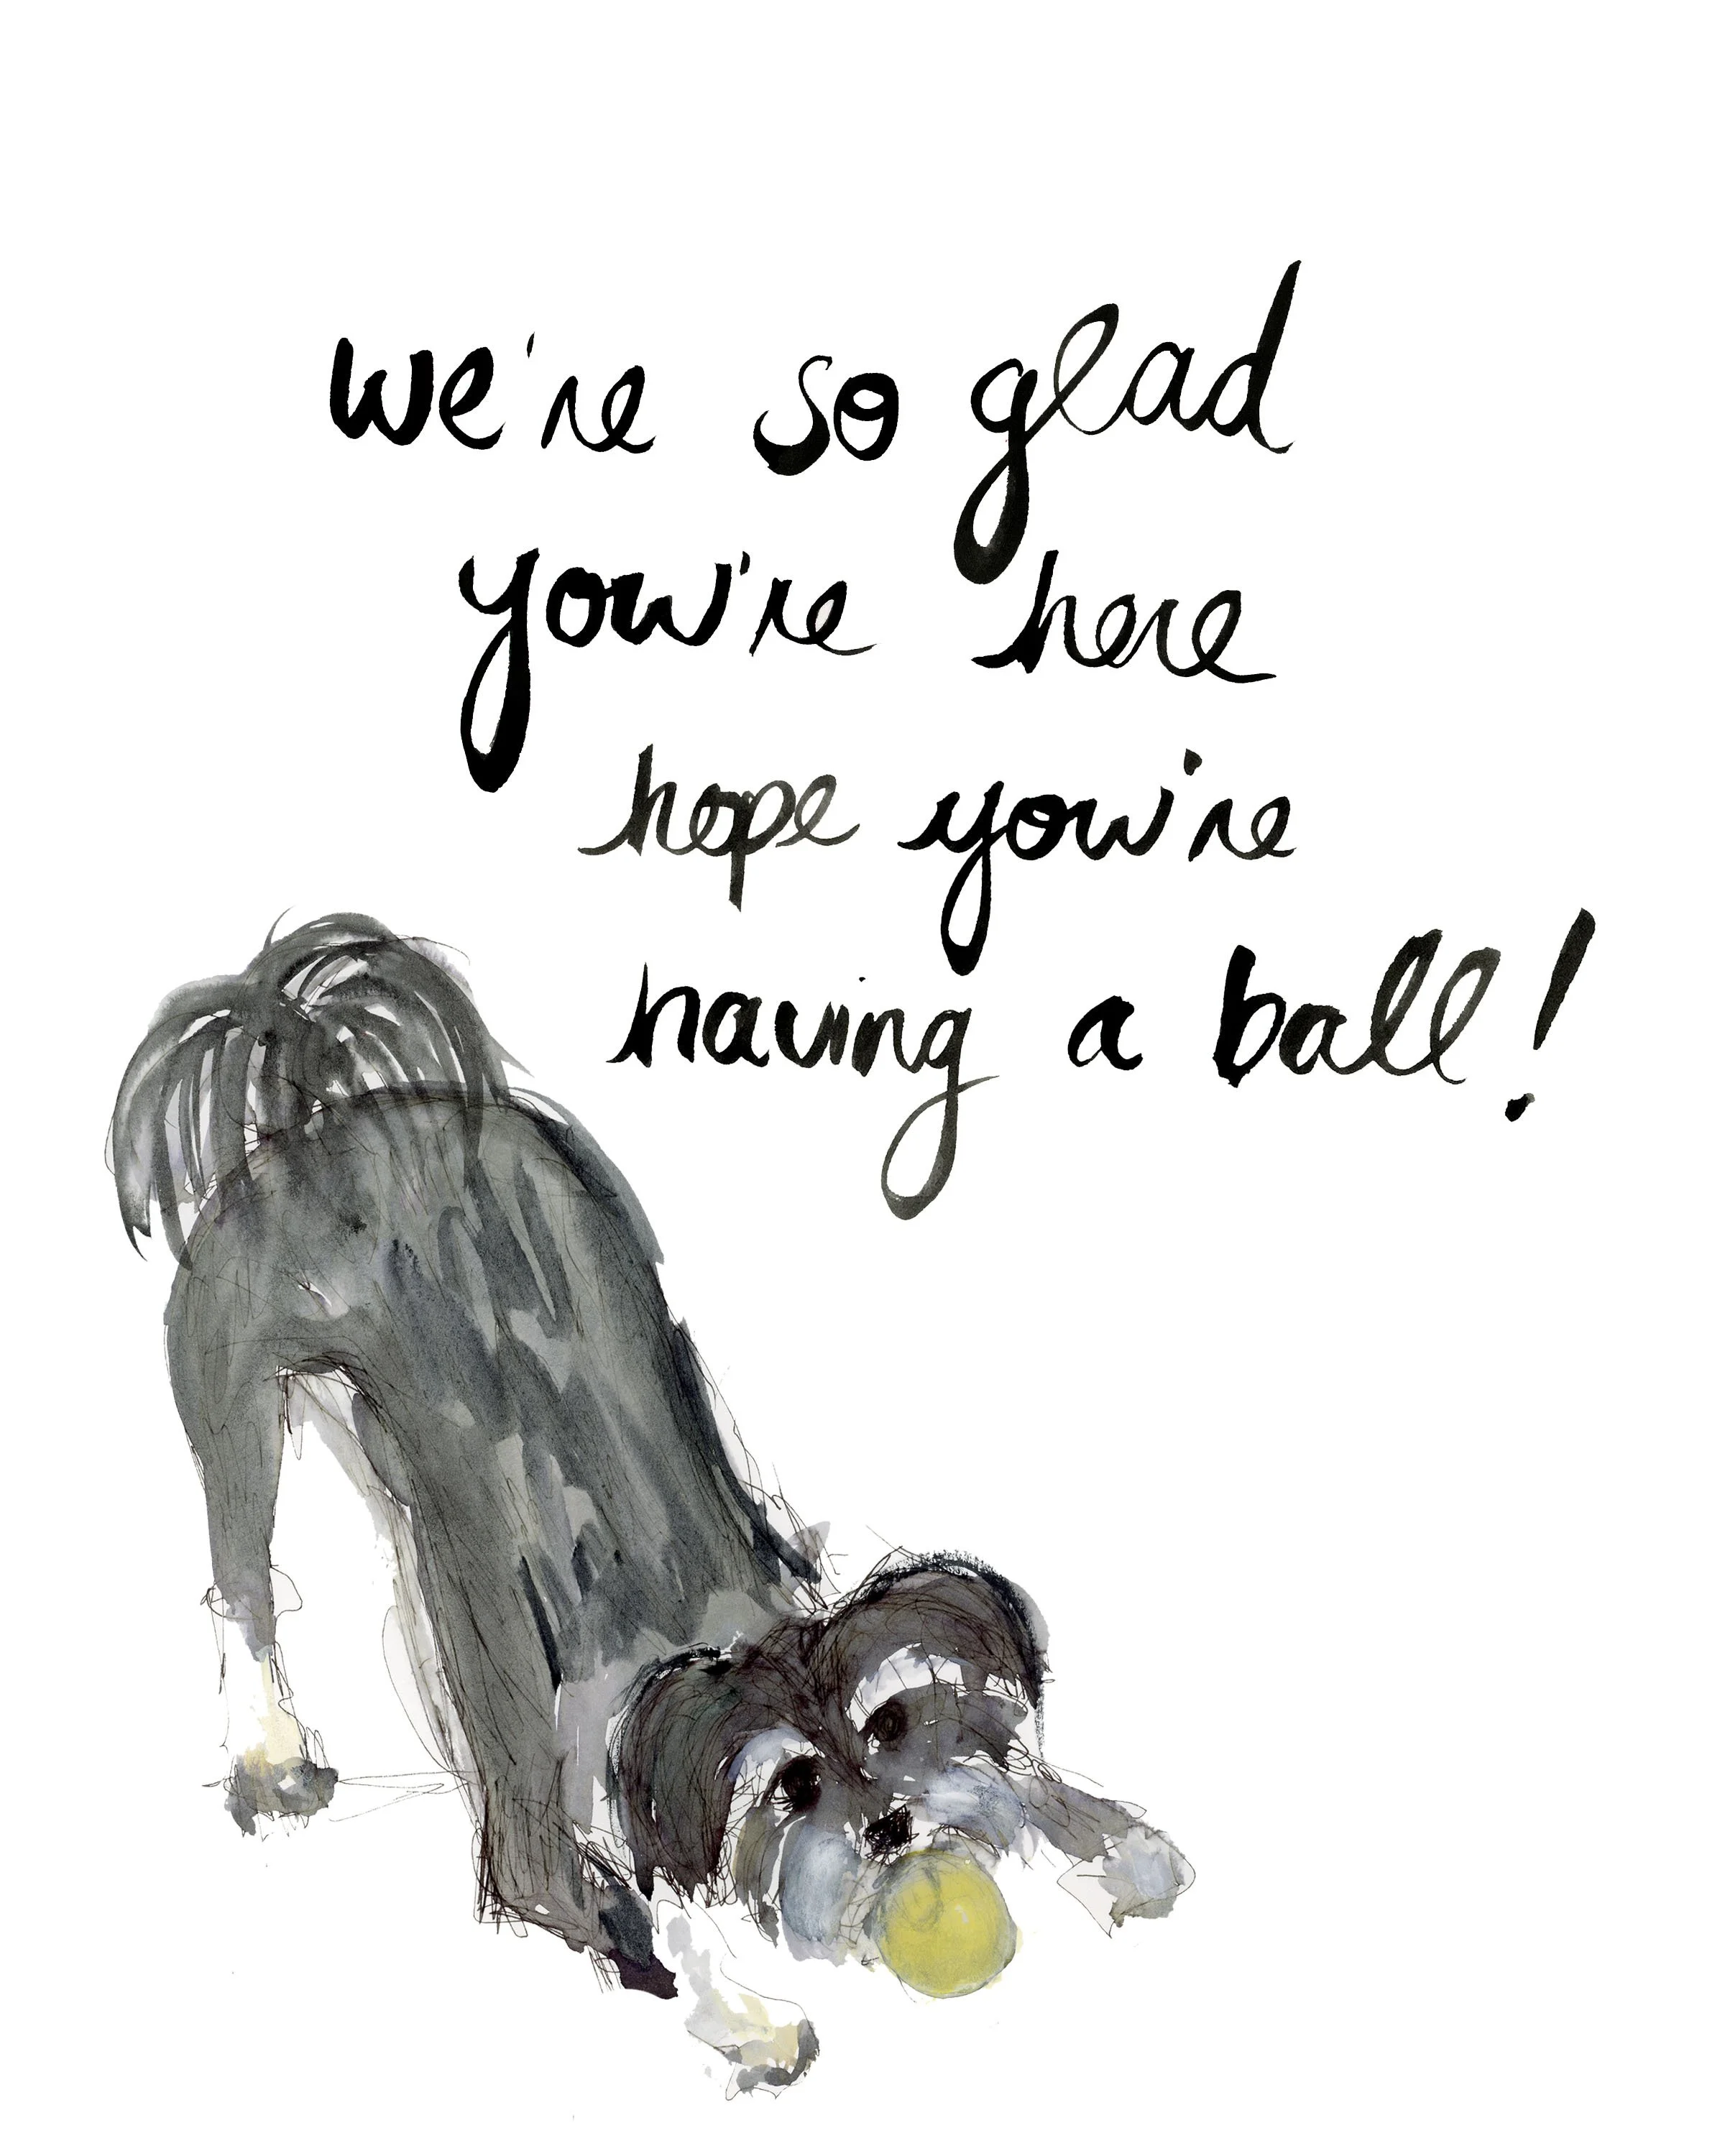 we're so glad
you're here
hope you're
having a ball!